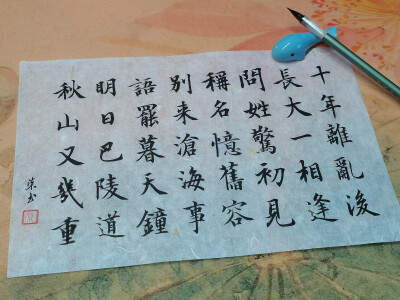 十年離亂後
長大一相逢
問姓驚初見
稱名憶舊容
别来滄海事
語罷暮天鐘
明日巴陵道
秋山又幾重